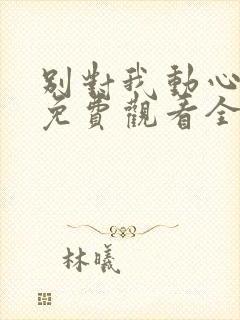 別對我動心
免費觀看全
林曦